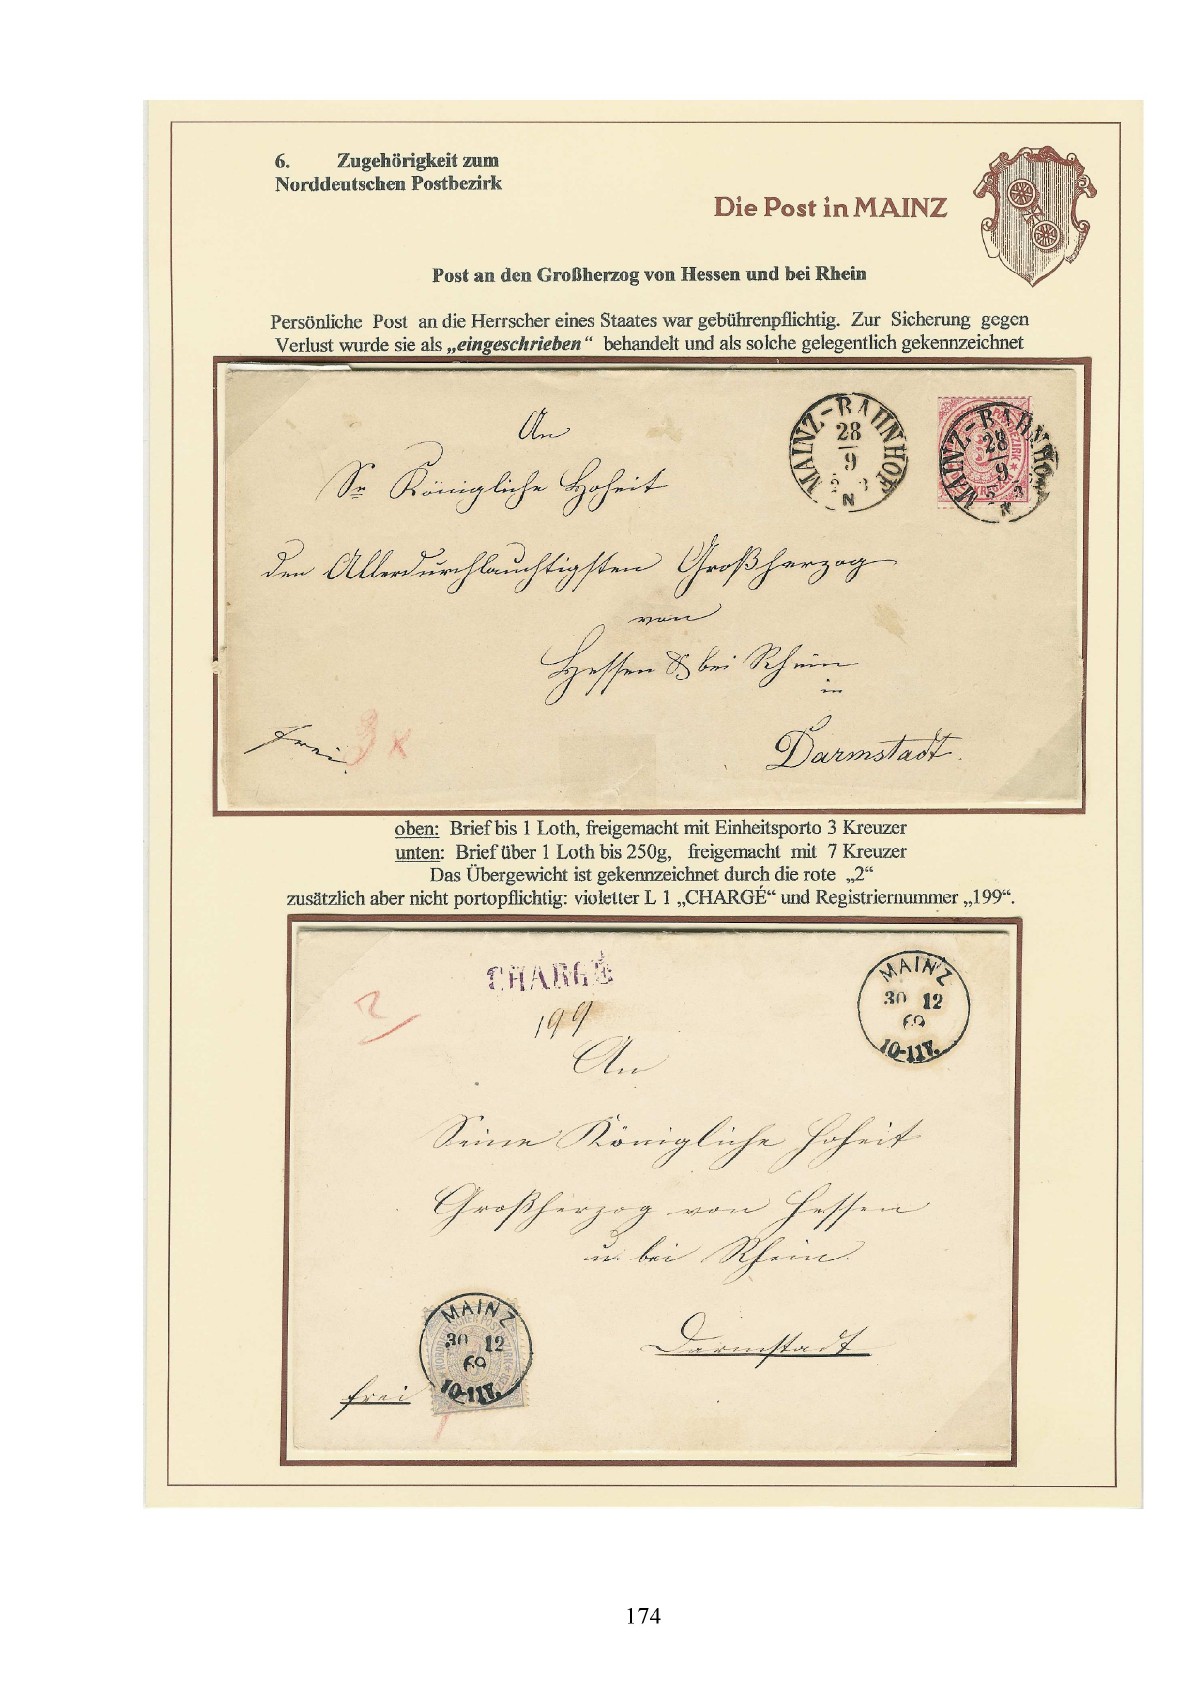 6. Zugehörigkeit zum
Norddeutschen Postbezirk
Die Post in MAINZ
Post an den Großherzog von Hessen und bei Rhein
Persönliche Post an die Herrscher eines Staates war gebührenpflichtig. Zur Sicherung gegen
Verlust wurde sie als „eingeschrieben“ behandelt und als solche gelegentlich gekennzeichnet
An
MAINZ-BAHNHOF
28
9
N
MAINZ-BAHNHOF
28
9
N
Sr Königliche Hoheit
den Allerdurchlauchtigsten Großherzog
von
Hessen & bei Rhein
in
Darmstadt.
frei
3 K
oben: Brief bis 1 Loth, freigemacht mit Einheitsporto 3 Kreuzer
unten: Brief über 1 Loth bis 250g, freigemacht mit 7 Kreuzer
Das Übergewicht ist gekennzeichnet durch die rote „2“
zusätzlich aber nicht portopflichtig: violetter L 1 „CHARGÉ“ und Registriernummer „199“.
CHARGÉ
2
199
MAINZ
30 12
69
10-11V.
An
Seine Königliche Hoheit
Großherzog von Hessen
u. bei Rhein
Darmstadt
MAINZ
30 12
69
10-11V.
frei
174